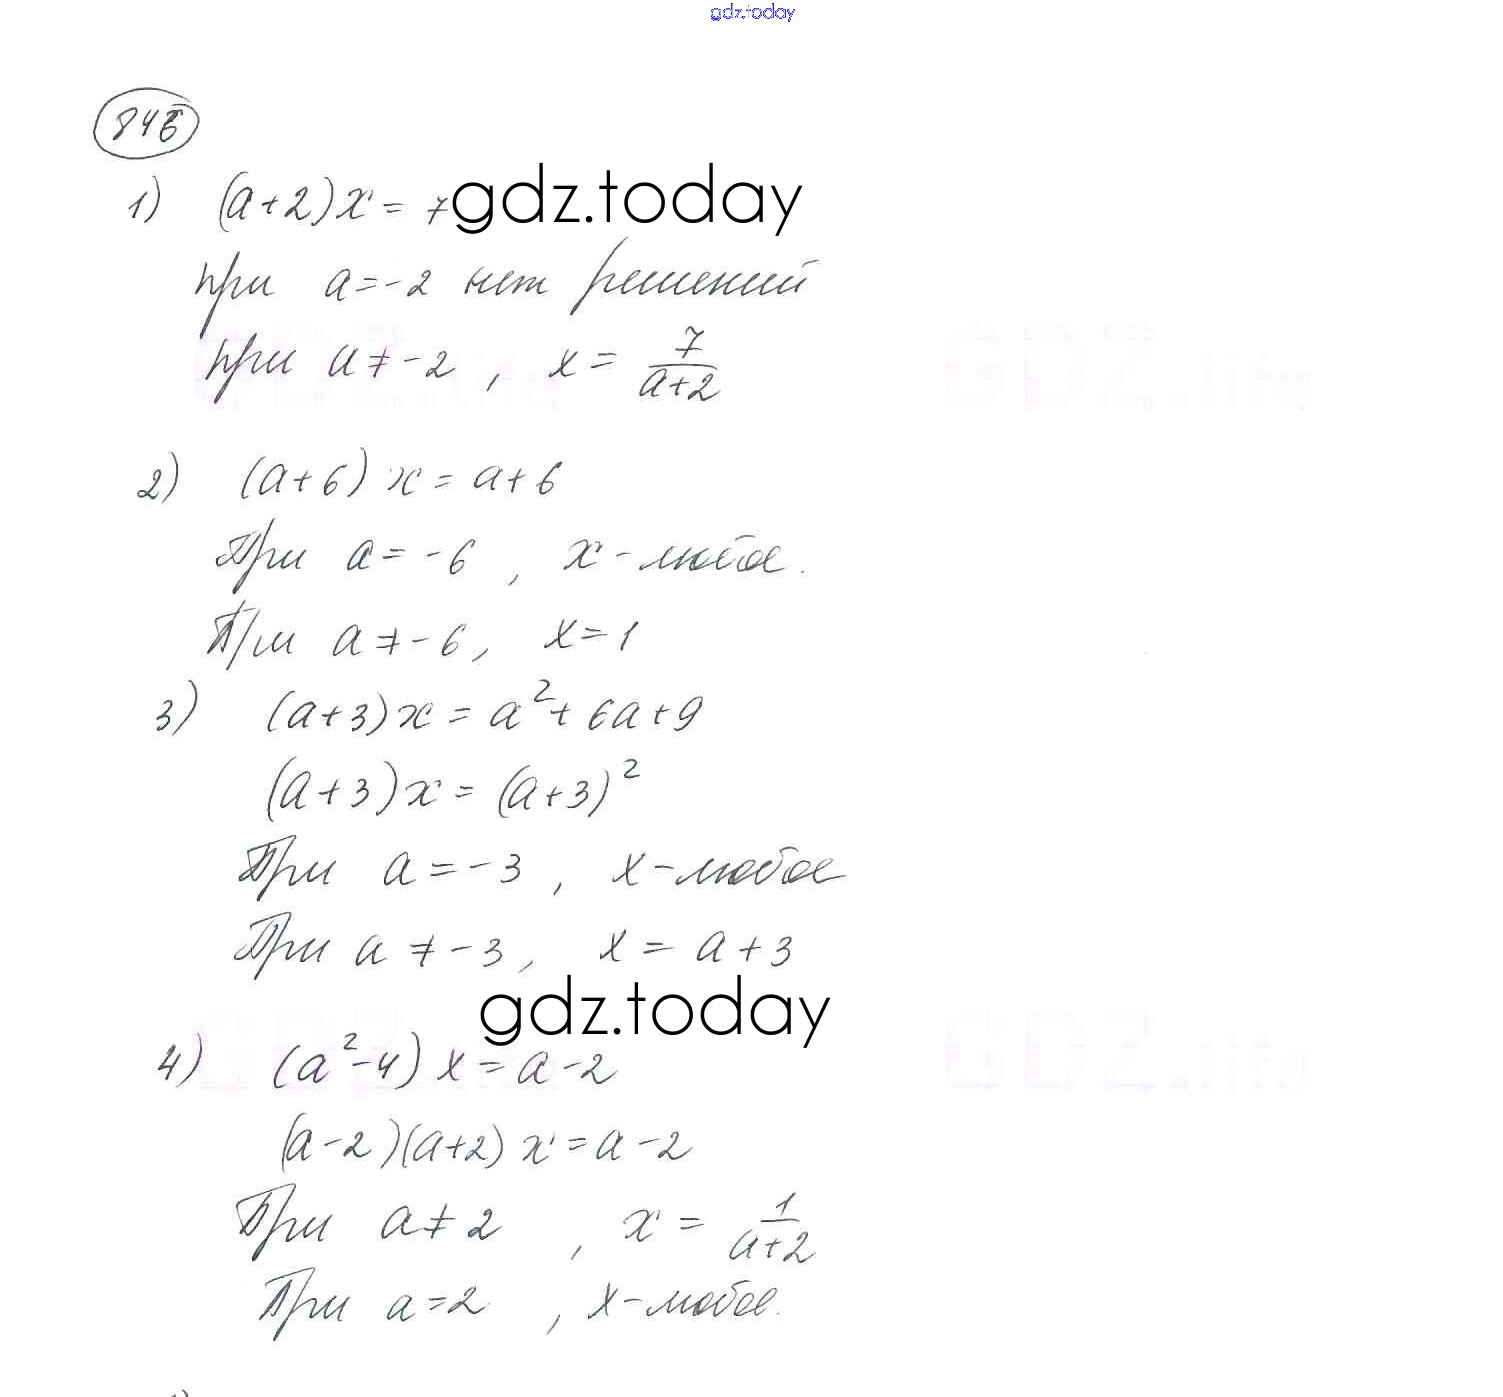 gdz.today
845
1) (a+2)x = 7
gdz.today
при a = -2 нет решений
при a ≠ -2 , x = 7/(a+2)
2) (a+6) x = a+6
При a = -6 , x - любое.
При a ≠ -6, x = 1
3) (a+3)x = a² + 6a + 9
(a+3)x = (a+3)²
При a = -3 , x - любое
При a ≠ -3, x = a + 3
gdz.today
4) (a²-4) x = a - 2
(a-2)(a+2) x = a - 2
При a ≠ 2 , x = 1/(a+2)
При a = 2 , x - любое.
GDZ.life
GDZ.life
GDZ.life
GDZ.life